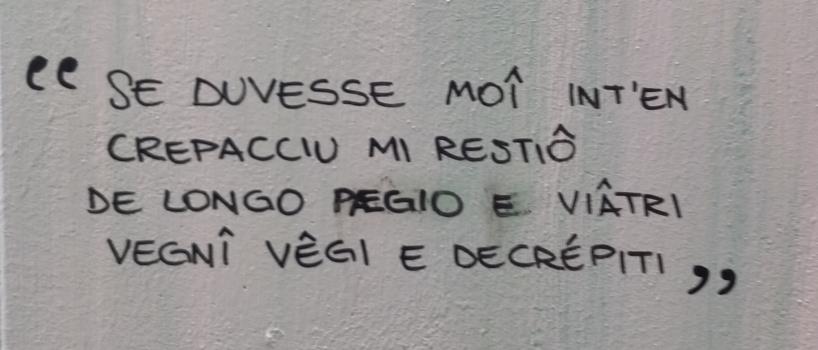 “ SE DUVESSE MOÎ INT'EN
CREPACCIU MI RESTIÔ
DE LONGO PÆGIO E VIÂTRI
VEGNÎ VÊGI E DECRÉPITI „